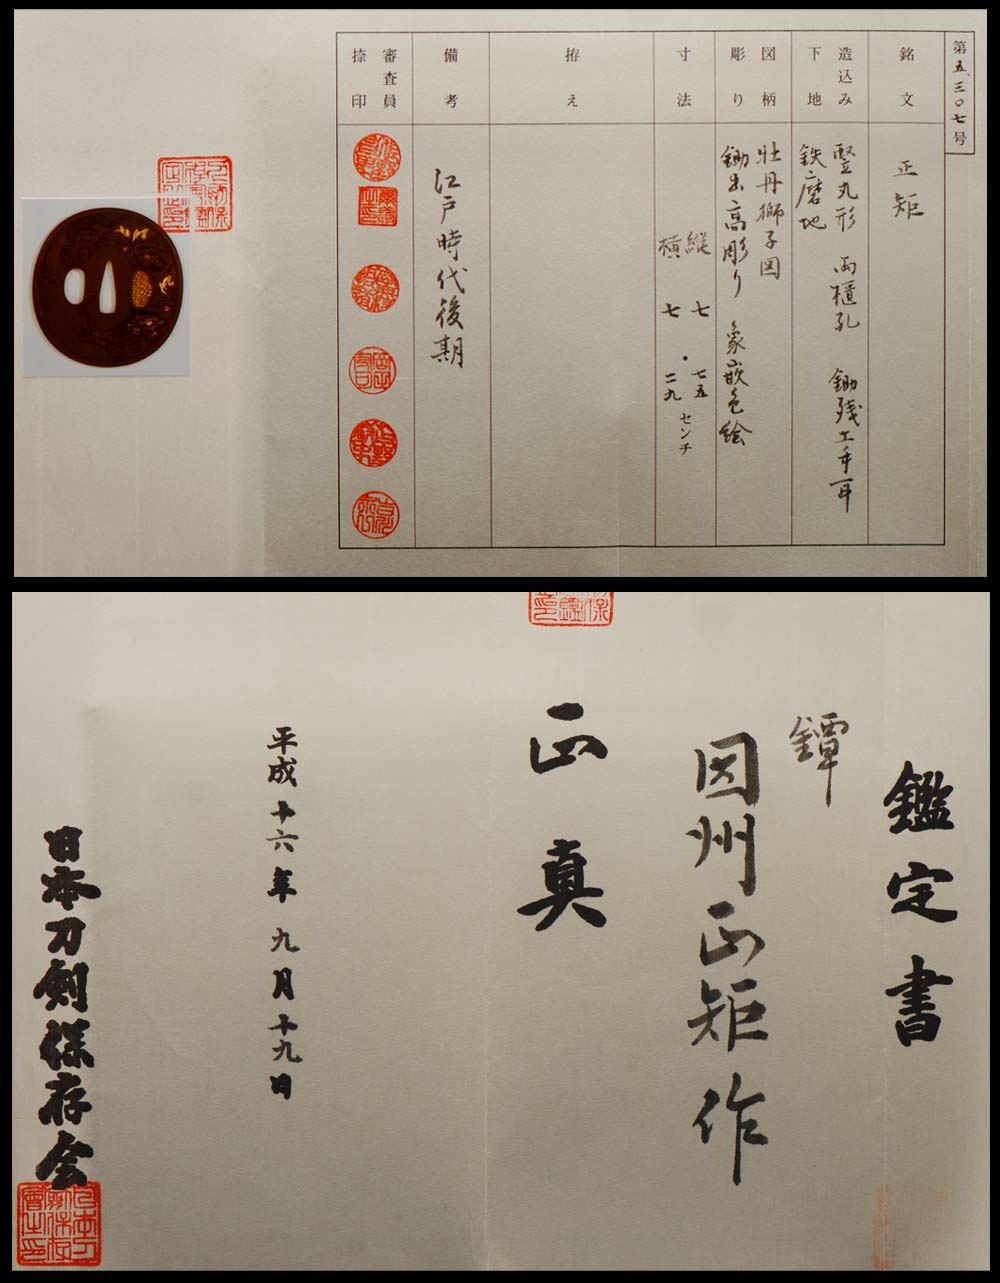 第五、三〇七号
銘文
正矩
造込み
下地
竪丸形 両櫃孔 鋤残土手耳
鉄磨地
図柄
彫り
牡丹獅子図
鋤出高彫り 象嵌色絵
寸法
縦 七・七五
横 七・二九
センチ
拵え
備考
江戸時代後期
審査員
捺印
鑑定書
鐔
因州正矩作
正真
平成十六年九月十九日
日本刀剣保存会